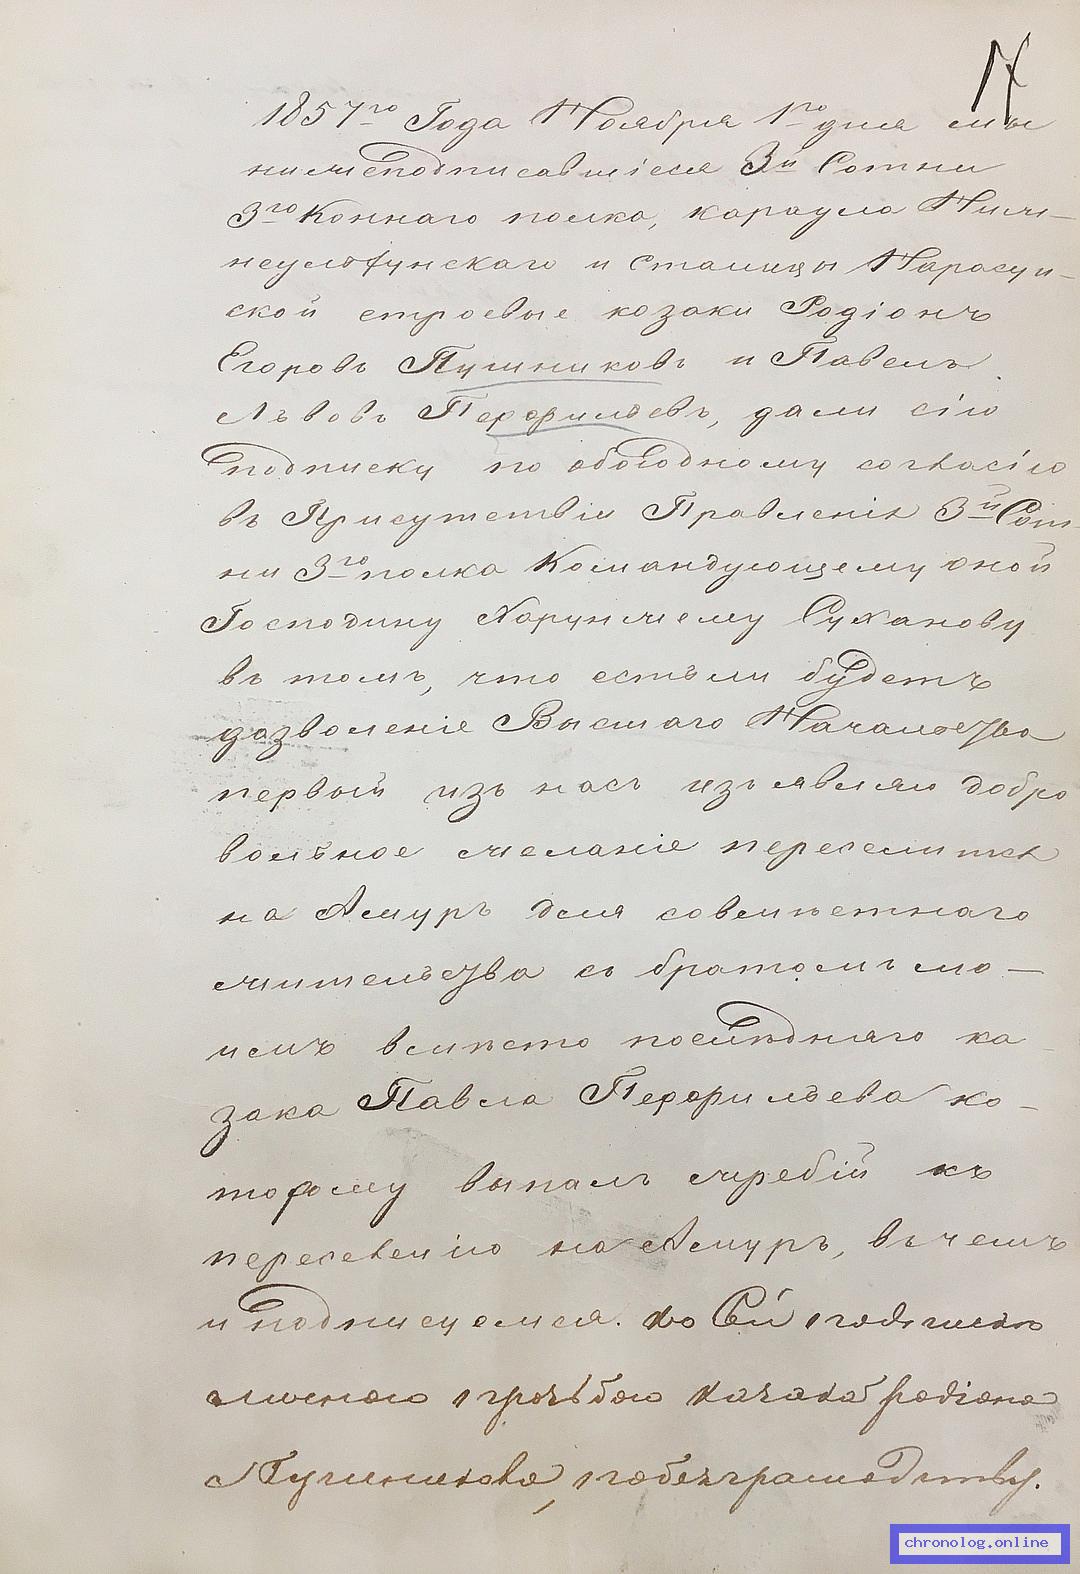 17
1857го Года Ноября 1го дня мы
нижеподписавшіеся 3й Сотни
3го Коннаго полка, караула Ниж-
неульхунскаго и станицы Нарасун-
ской строевые козаки Родіонъ
Егоровъ Пушниковъ и Павелъ
Львовъ Перфильевъ, дали сію
подписку по обоюдному согласію
въ Присутствіи Правленія 3й Сот-
ни 3го полка Командующему оной
Господину Хорунжему Суханову
въ томъ, что естьли будетъ
дозволеніе Высшаго Начальства
первый изъ насъ изъявляю добро
вольное желаніе переселится
на Амуръ для совместнаго
жительства съ братомъ мо-
имъ вместо последняго ка
зака Павла Перфильева ко-
торому выпалъ жребій къ
переселенію на Амуръ, въ чемъ
и подписуемся. Ко Сей подписке
личною прозьбою казака Родіона
Пушникова, по безграмотству.
chronolog.online